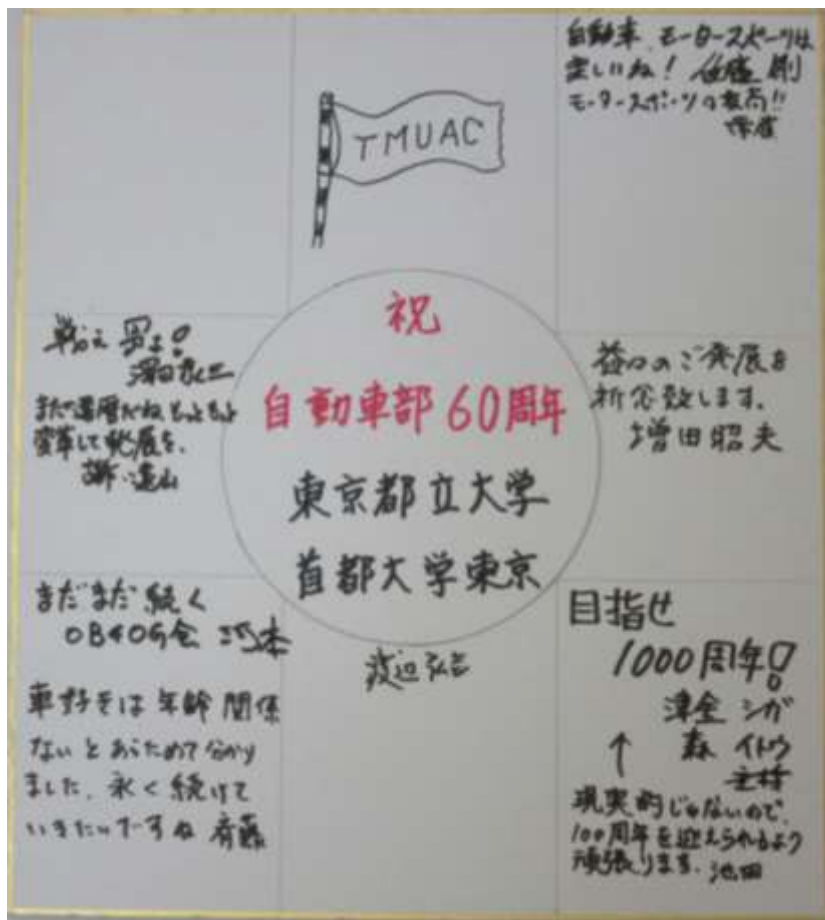 TMUAC
自動車、モータースポーツは
楽しいね!
モータースポーツの最高!!
祝
自動車部60周年
東京都立大学
首都大学東京
戦え 男よ!
まだ還暦だね、もっともっと
変革して発展を、
遠山
益々のご発展を
祈念致します。
増田昭夫
まだまだ続く
OB・OG会
車好きは年齢関係
ないとあらためて分かり
ました、永く続けて
いきたいですね 斉藤
渡辺弘吉
目指せ
1000周年!
津金 シガ
↑ 森 イトウ
現実的じゃないので、
100周年を迎えられるよう
頑張ります。池田